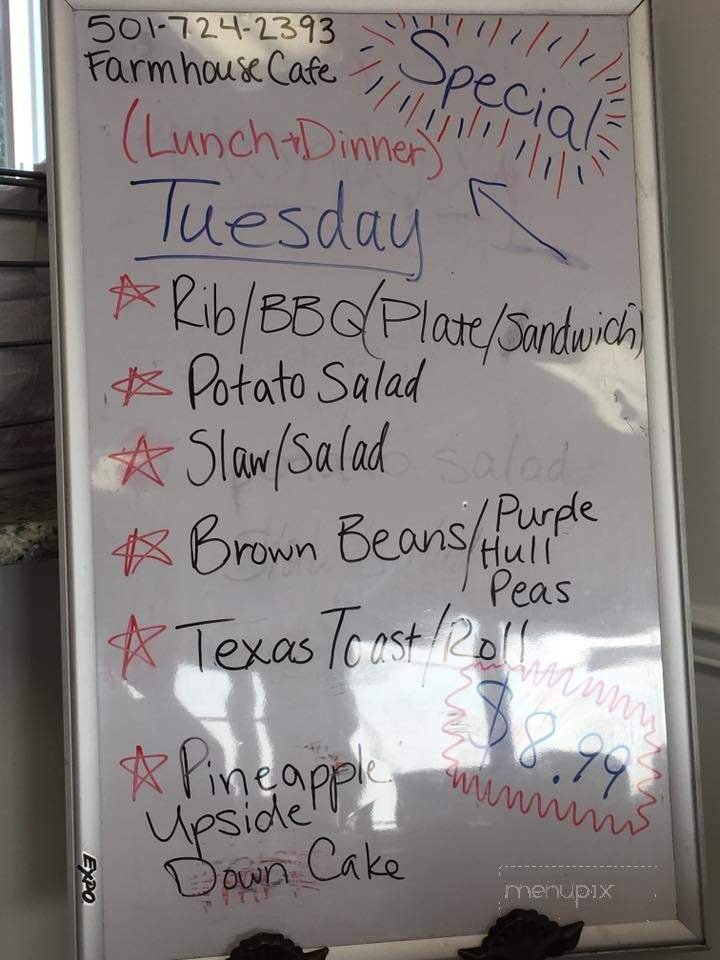 501-724-2393
Farmhouse Cafe
Special
(Lunch + Dinner)
Tuesday
Rib/BBQ (Plate/Sandwich)
Potato Salad
Slaw/Salad
Brown Beans/Purple
Hull
Peas
Texas Toast/Roll
$8.99
Pineapple
Upside
Down Cake
EXPO
menupix